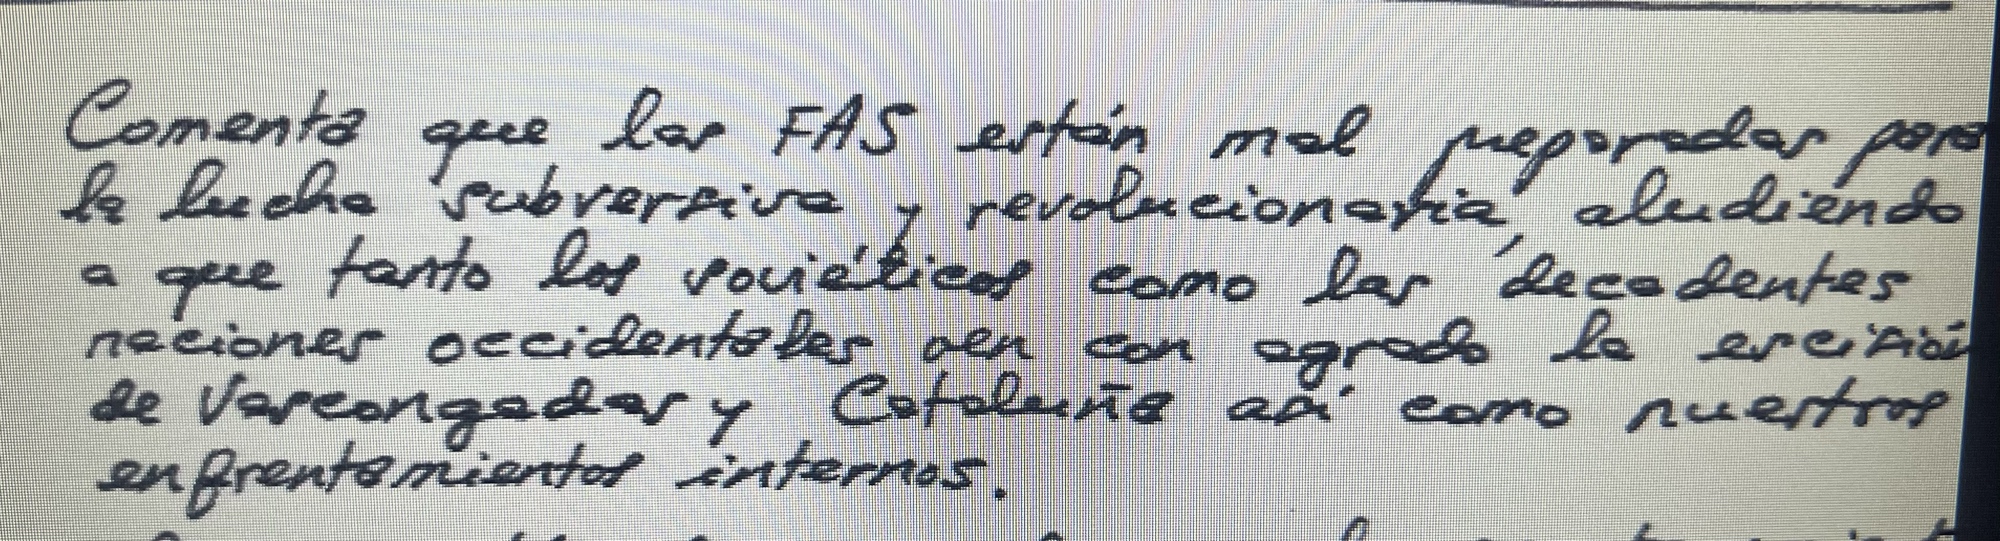 Comenta que las FAS están mal preparadas para
la lucha subversiva y revolucionaria, aludiendo
a que tanto los soviéticos como las decadentes
naciones occidentales ven con agrado la escisión
de Vascongadas y Cataluña así como nuestros
enfrentamientos internos.